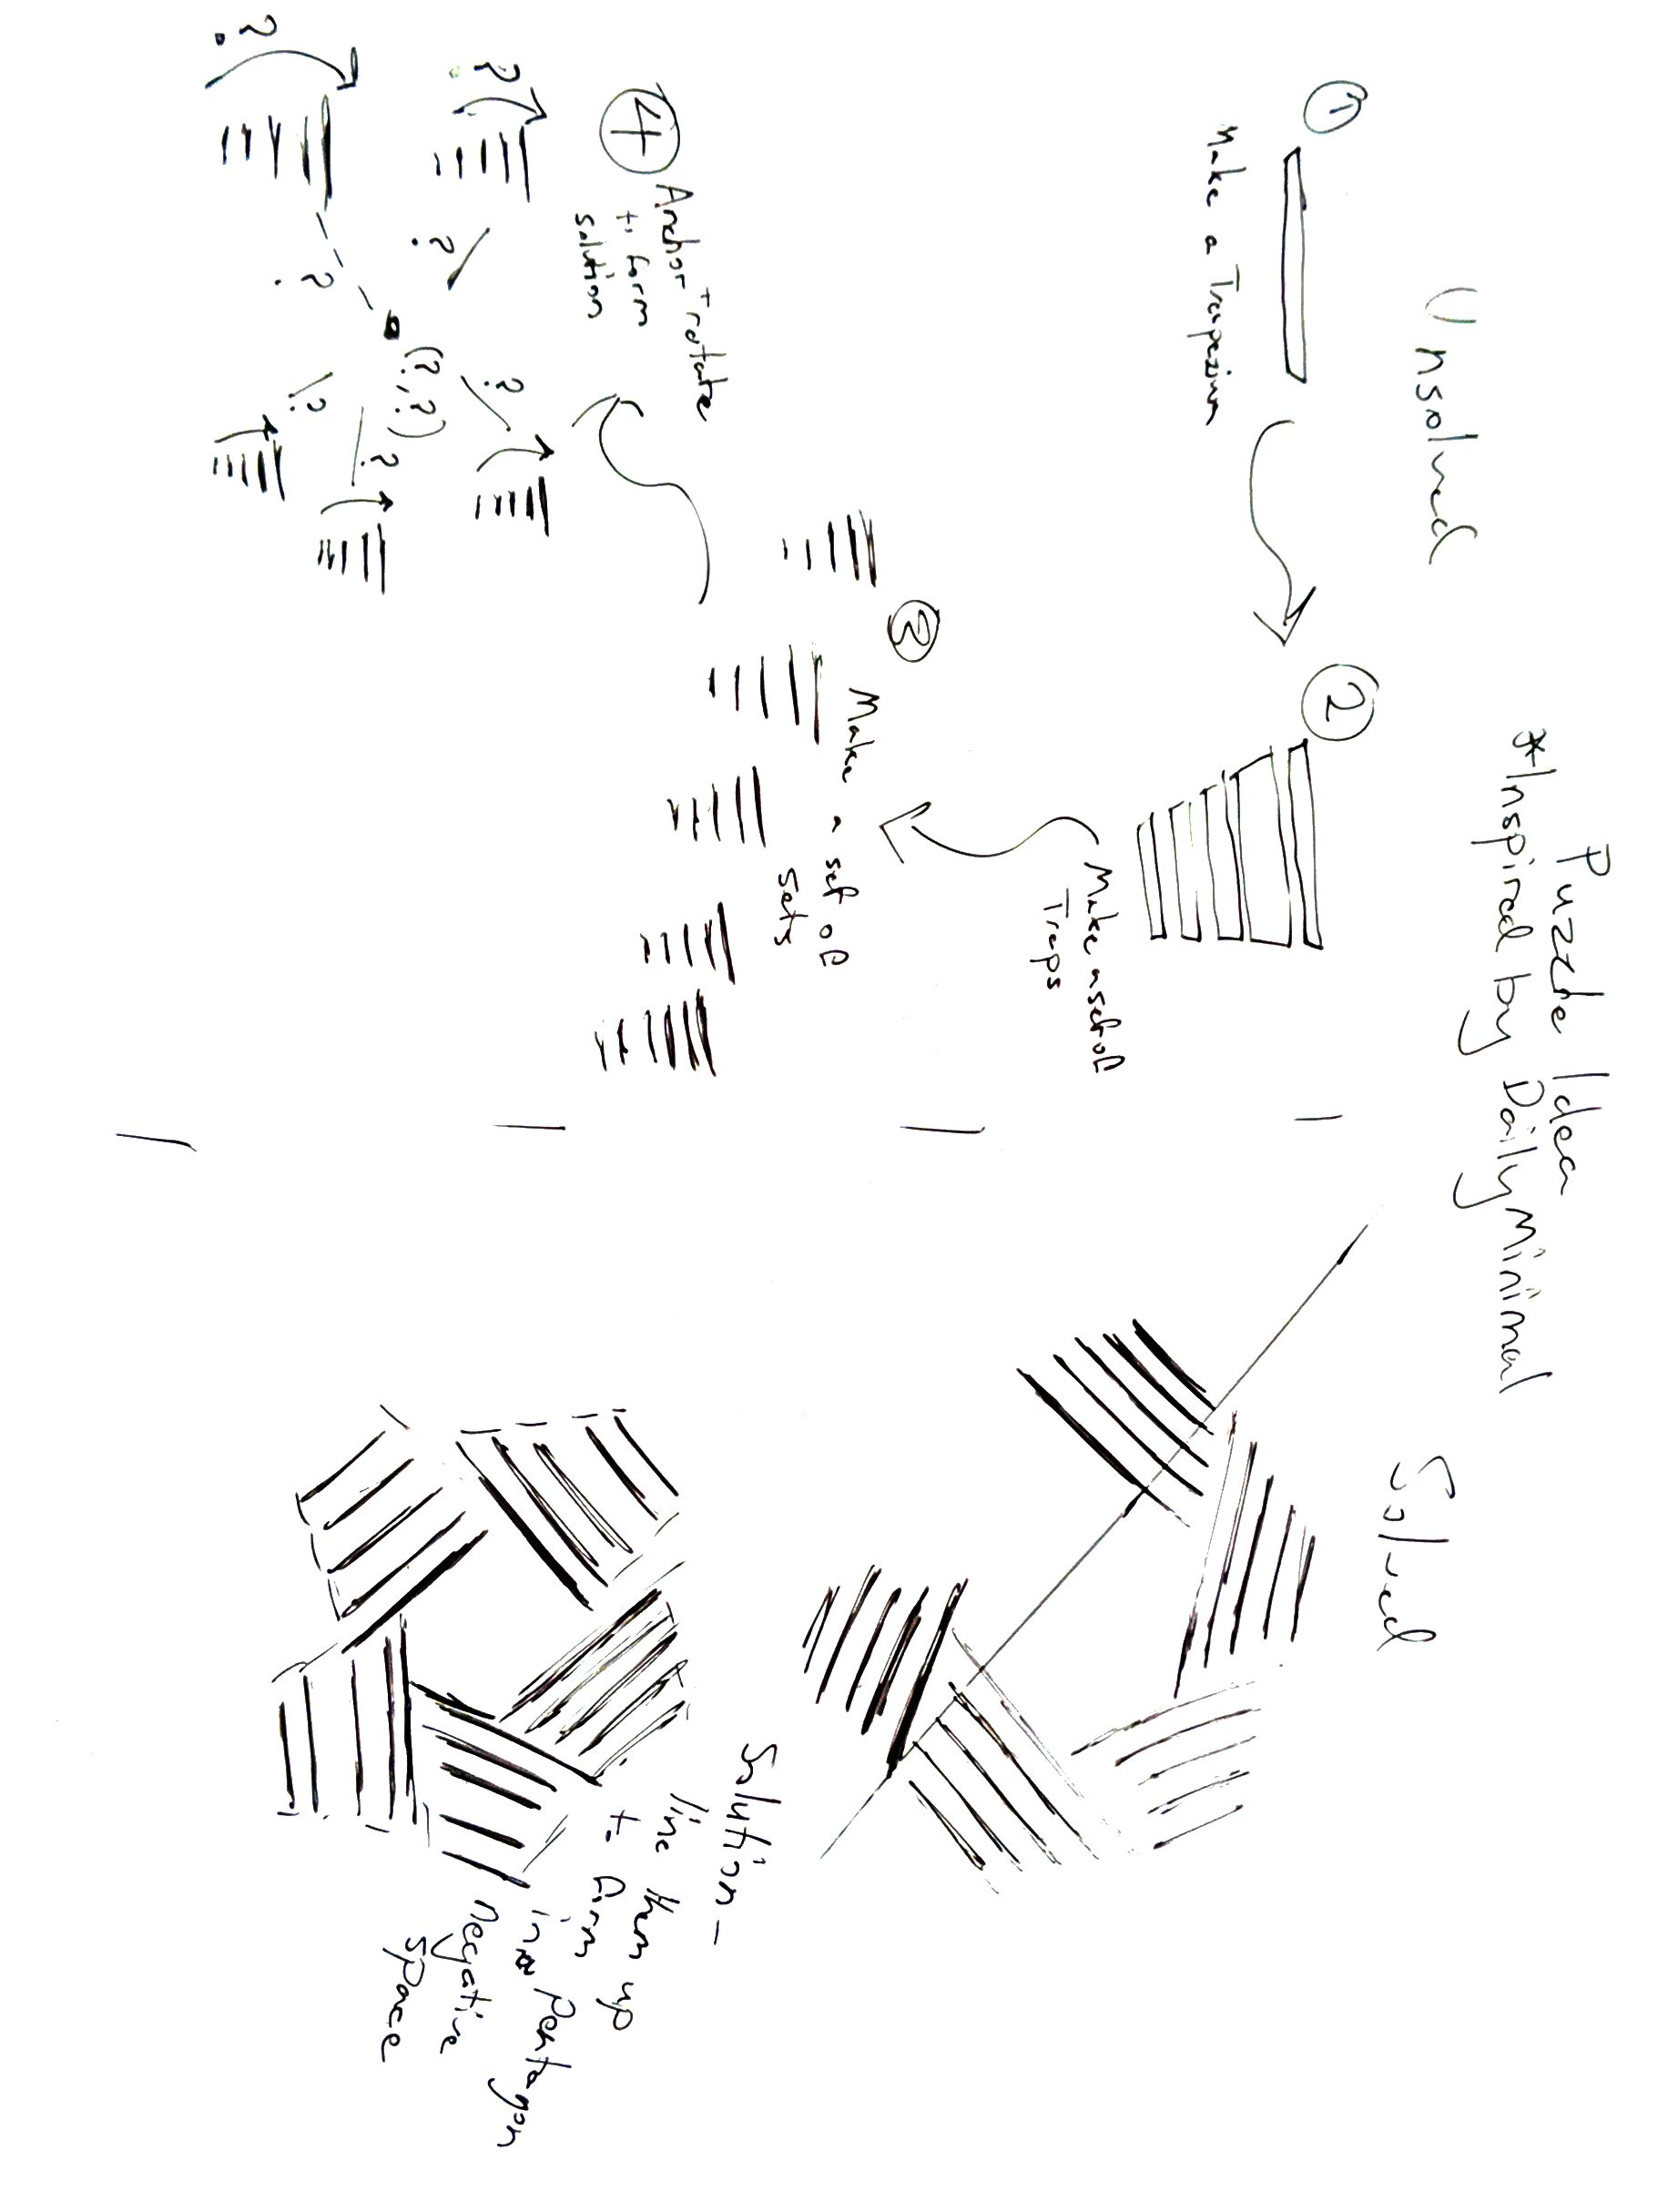 Puzzle Idea
*Inspired by Daily Minimal
Unsolved
Solved
①
Make a Trapezium
②
Make a set of
Traps
③
Make a set of
sets
④
Anchor + rotate
to form
solution
?
?
?
?
(?,?)
?
?
?
Solution -
line them up
to form
in a pentagon
negative
space